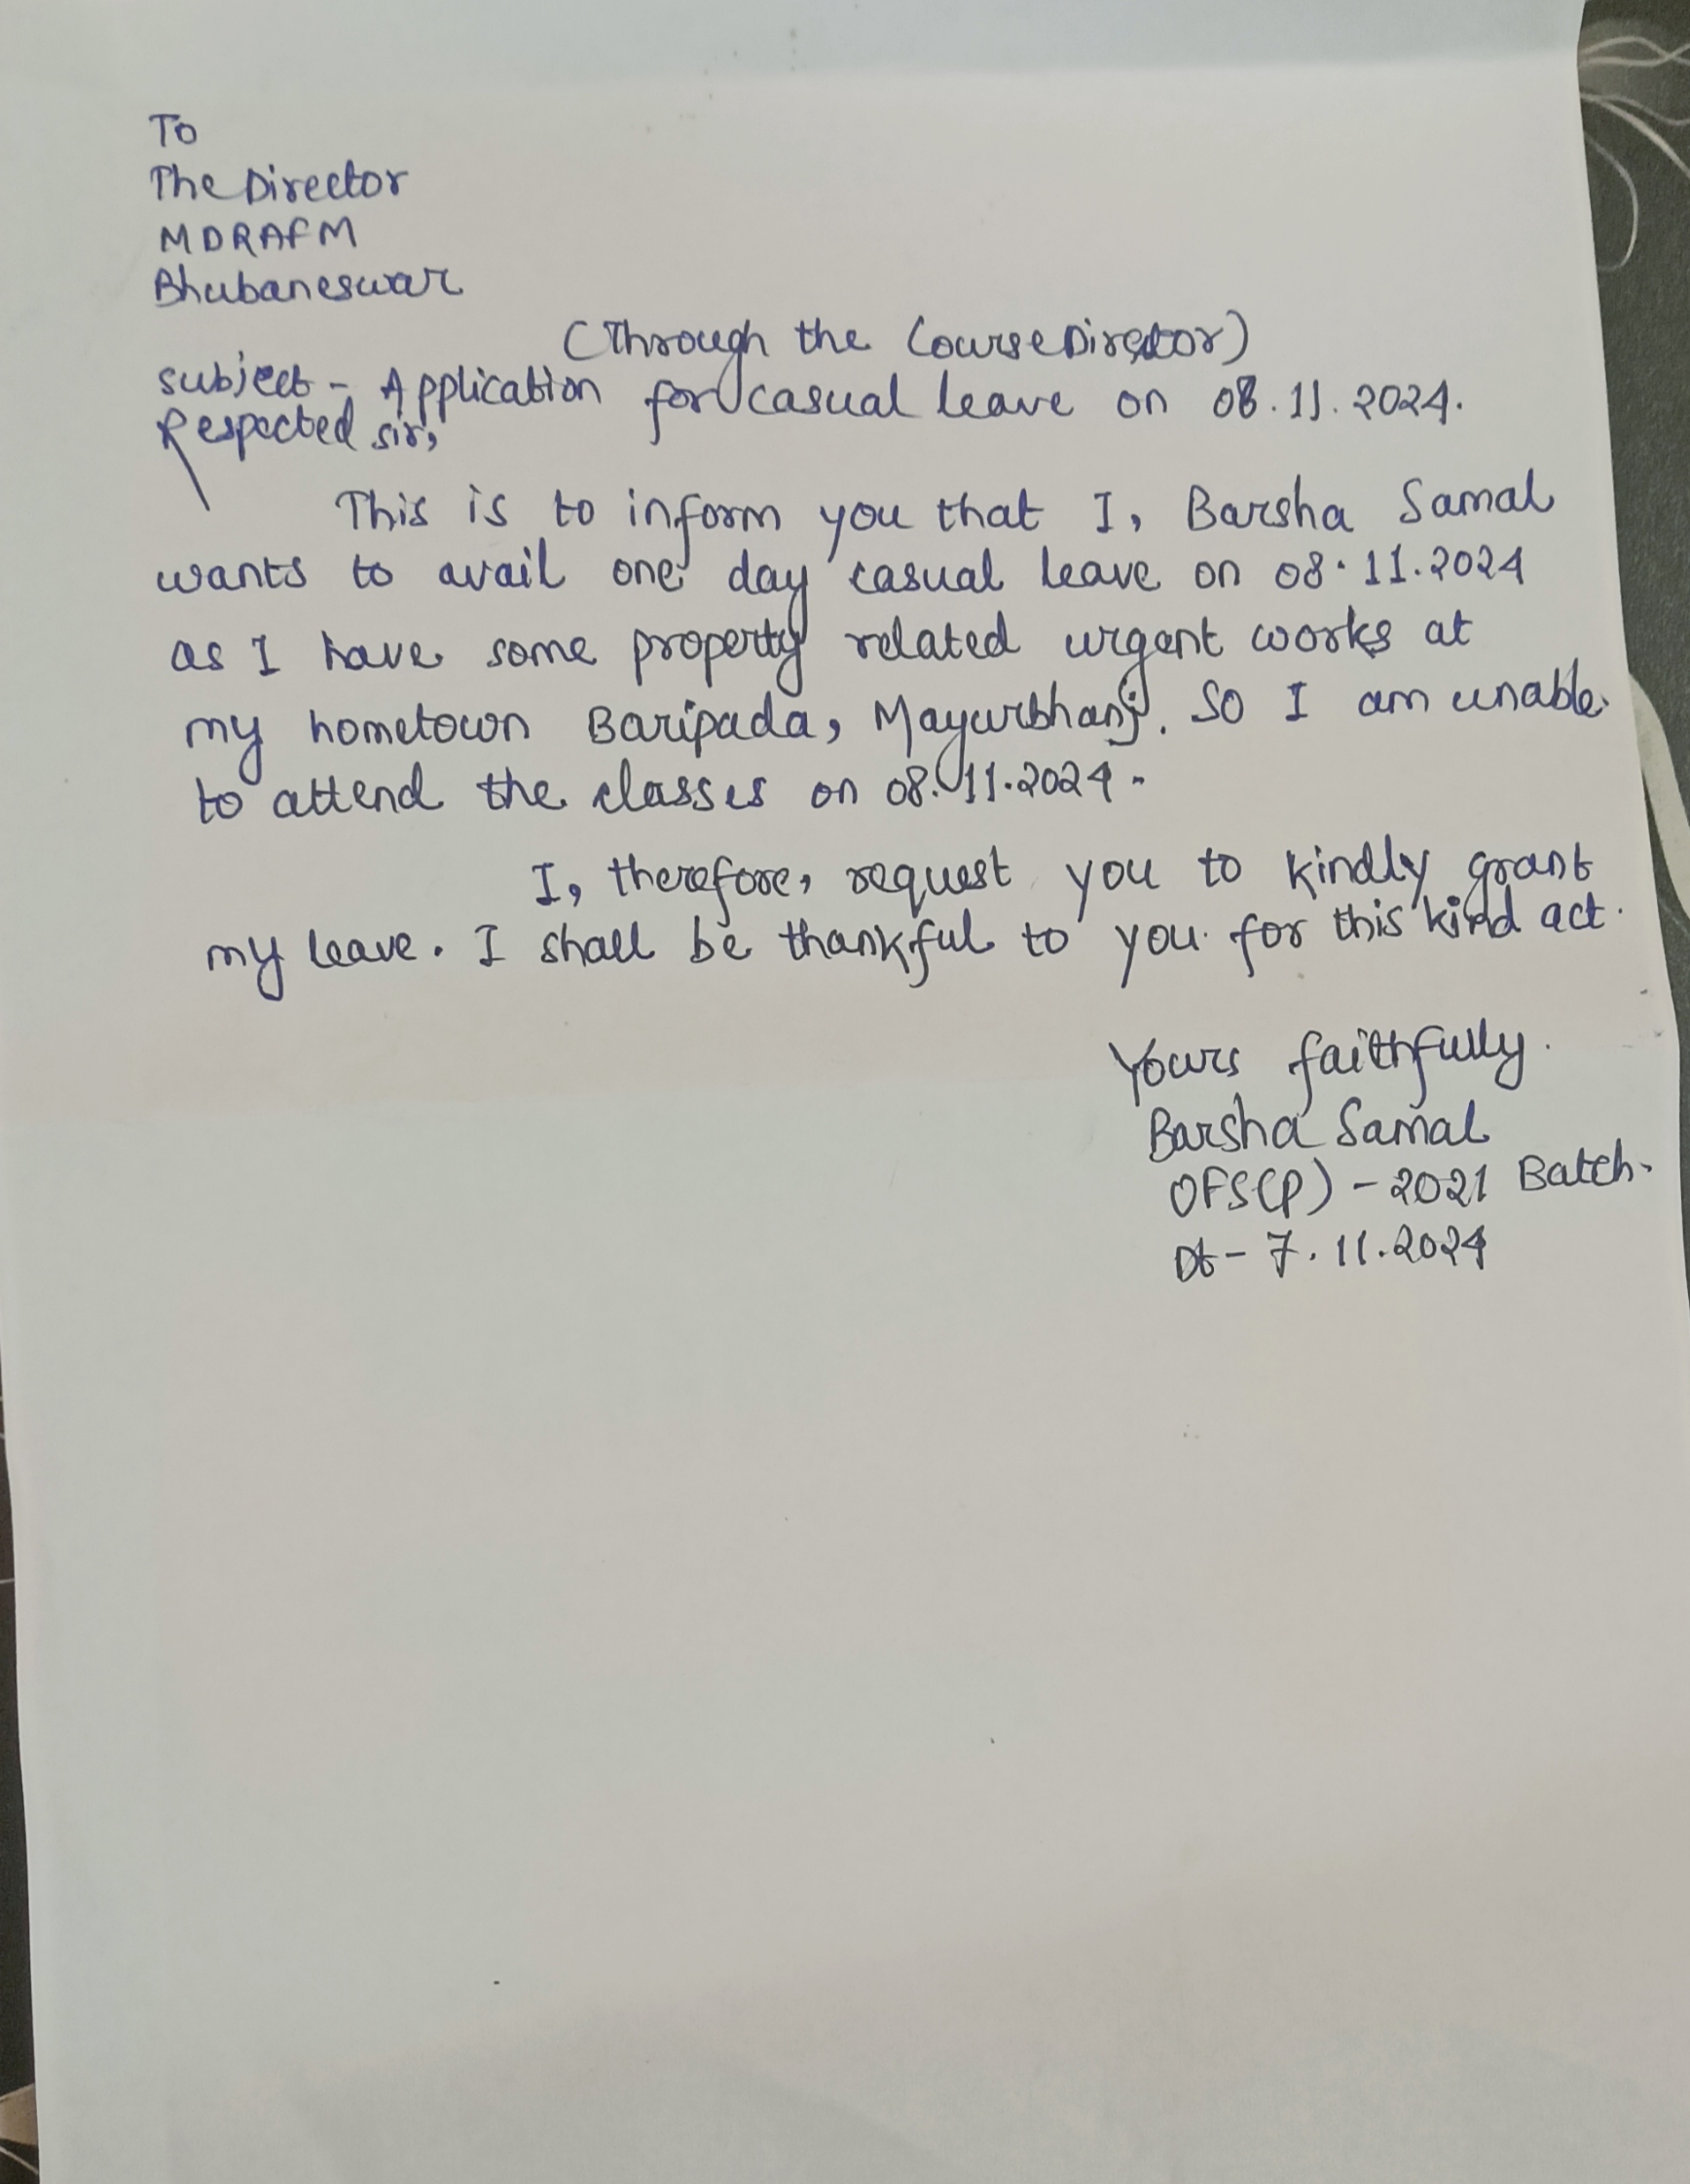 To
The Director
MDRAFM
Bhubaneswar
(Through the Course Director)
Subject - Application for casual leave on 08.11.2024.
Respected sir,
This is to inform you that I, Barsha Samal
wants to avail one day casual leave on 08.11.2024
as I have some property related urgent works at
my hometown Baripada, Mayurbhanj. So I am unable
to attend the classes on 08.11.2024.
I, therefore, request you to kindly grant
my leave. I shall be thankful to you for this kind act.
Yours faithfully.
Barsha Samal
OFS(P) - 2021 Batch.
Dt - 7.11.2024